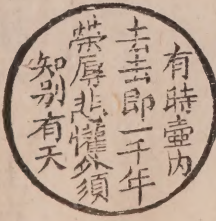 有時壷内
去去即一千年
榮辱悲懽外須
知别有天